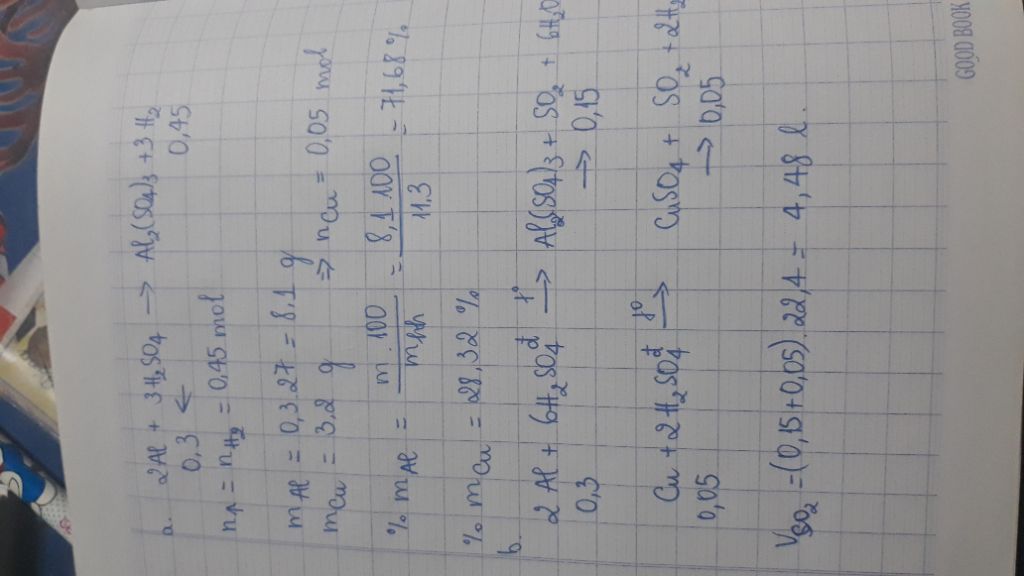 a. 2Al + 3H₂SO₄ → Al₂(SO₄)₃ + 3H₂
0,3 ← 0,45
n₁ = n_H₂ = 0.45 mol
m_Al = 0,3.27 = 8,1 g
m_Cu = 3.2 g ⇒ n_Cu = 0,05 mol
% m_Al = m . 100 / mhh = 8,1.100 / 11.3 = 71,68 %
% m_Cu = 28,32 %
b.
2Al + 6H₂SO₄đ t° → Al₂(SO₄)₃ + SO₂ + 6H₂O
0,3 → 0,15
Cu + 2H₂SO₄đ t° → CuSO₄ + SO₂ + 2H₂
0,05 → 0,05
V_SO₂ = (0,15+0,05).22,4 = 4,48 l.
GOOD BOOK